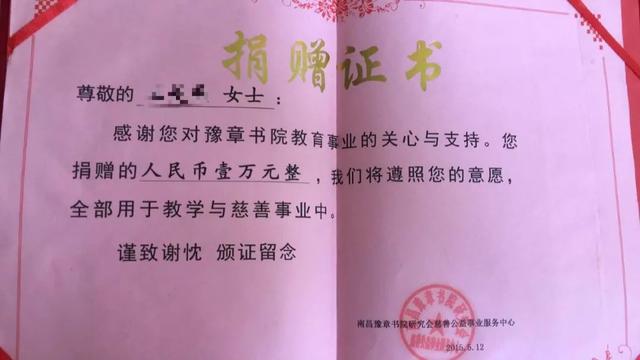 捐赠证书
尊敬的 女士：
感谢您对豫章书院教育事业的关心与支持。您
捐赠的人民币壹万元整，我们将遵照您的意愿，
全部用于教学与慈善事业中。
谨致谢忱 颁证留念
南昌豫章书院研究会慈善公益事业服务中心
2015.5.12